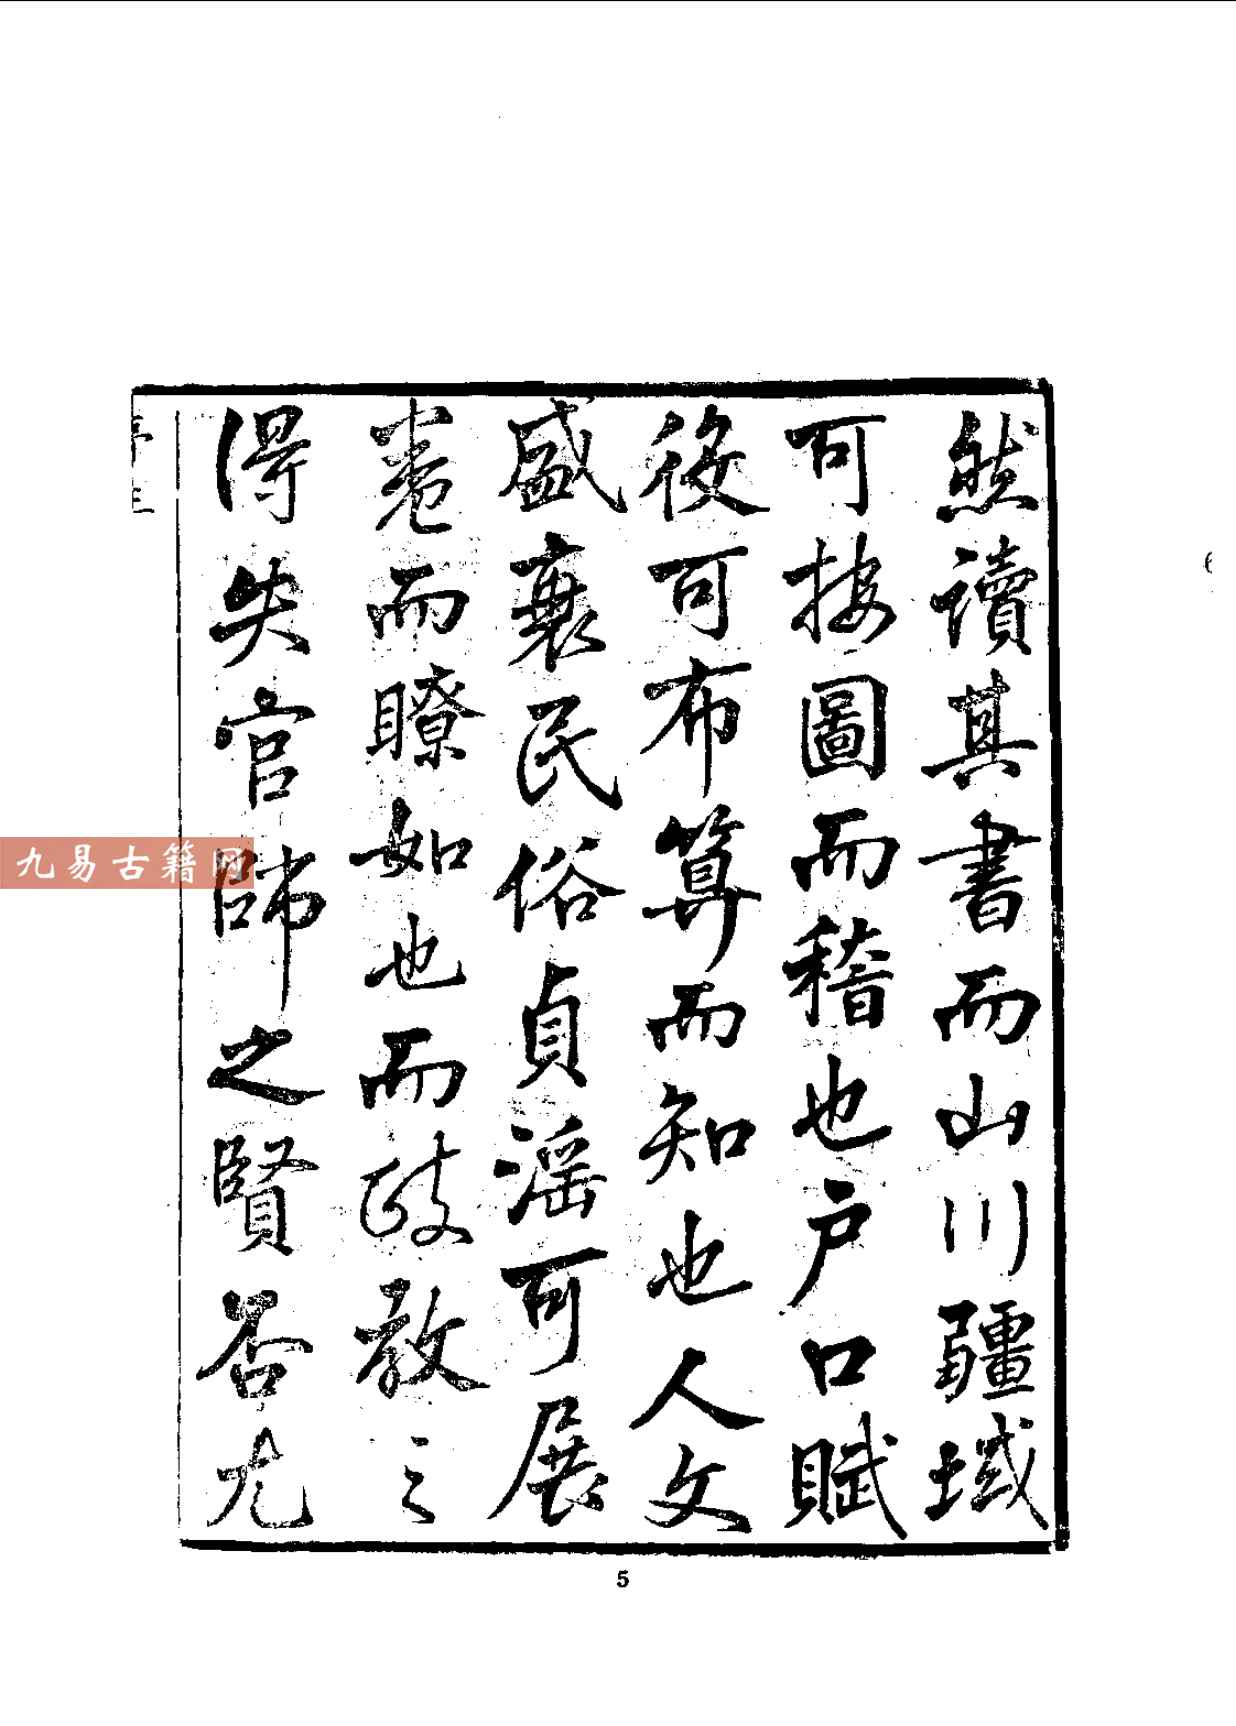 然讀其書而山川疆域
可按圖而稽也户口賦
役可布算而知也人文
盛衰民俗貞滛可展
卷而瞭如也而政教之
得失官師之賢否尤
序
三
九易古籍网
5